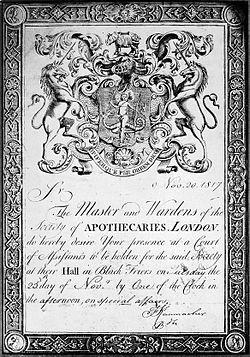 Nov. 20. 1817
Sr.
The Master and Wardens of the
Society of APOTHECARIES, LONDON,
do hereby desire Your presence at a Court
of Assistants to be holden for the said Society
at their Hall in Black Friers on
25 day of Novr. by One of the Clock in
the afternoon, on special affairs.